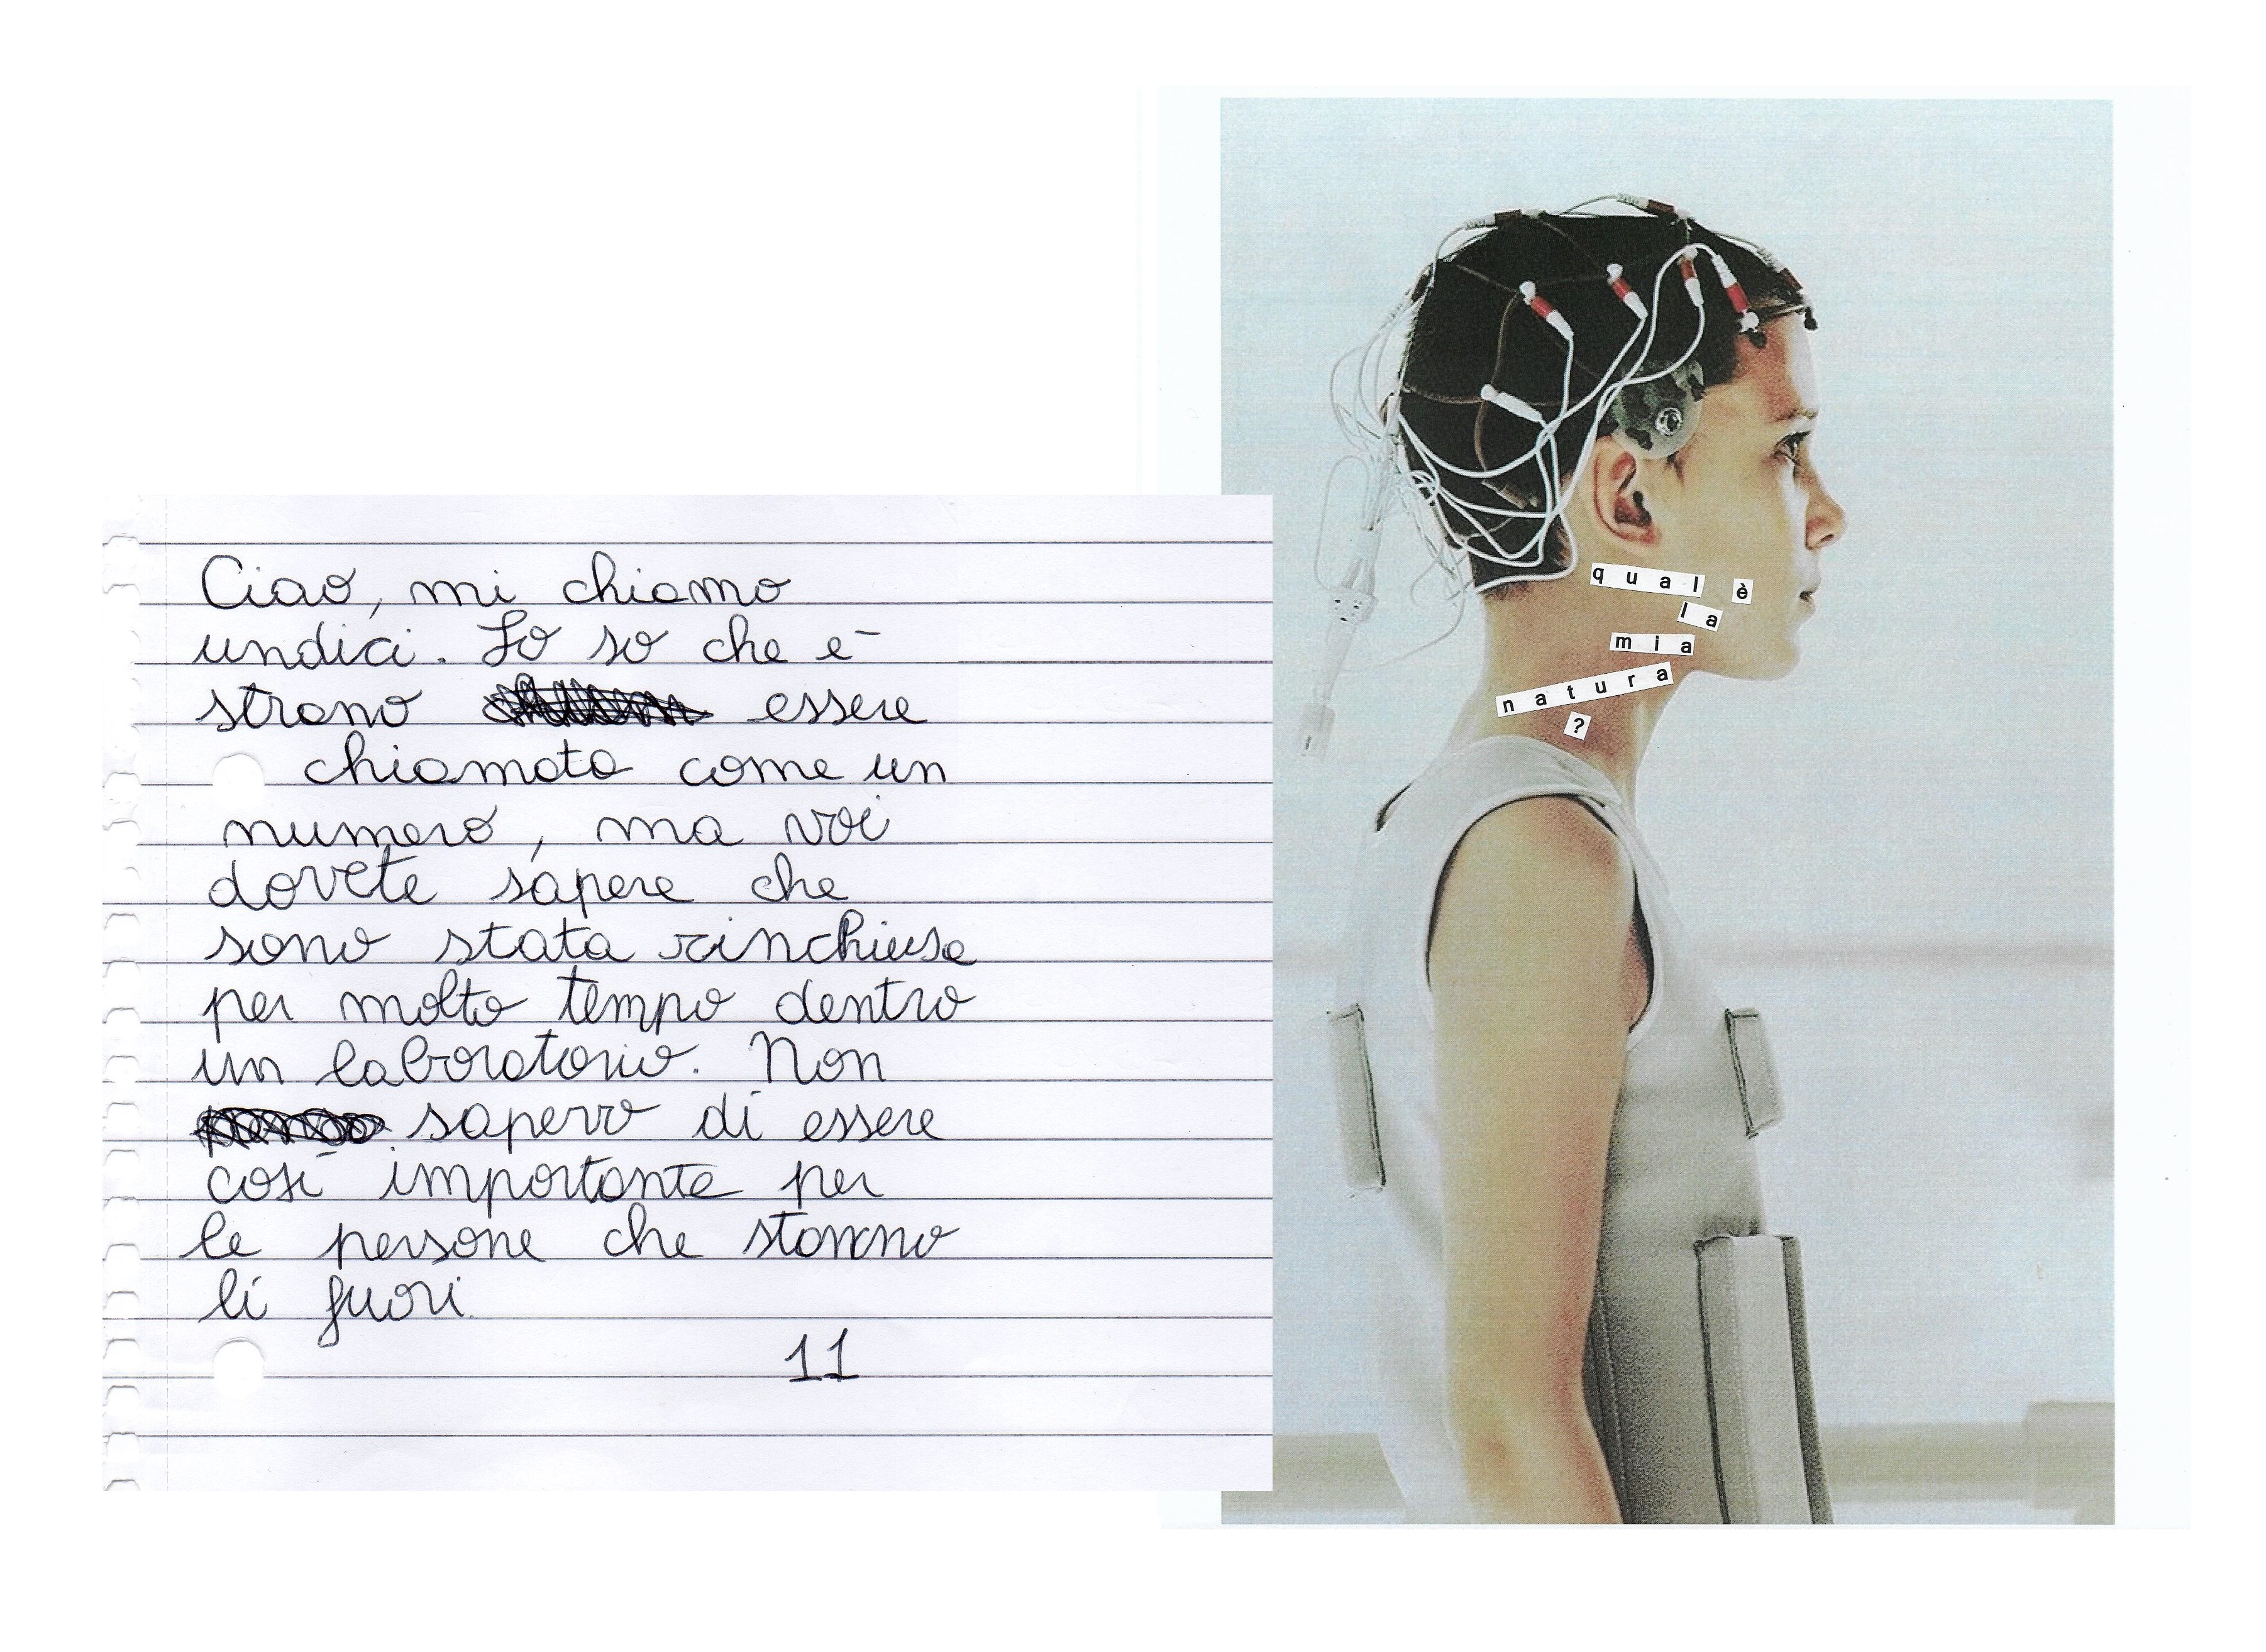 Ciao, mi chiamo
undici. Lo so che è
strano essere
chiamata come un
numero, ma voi
dovete sapere che
sono stata rinchiusa
per molto tempo dentro
un laboratorio. Non
sapevo di essere
così importante per
le persone che stanno
lì fuori.
11
qual è
la
mia
natura
?